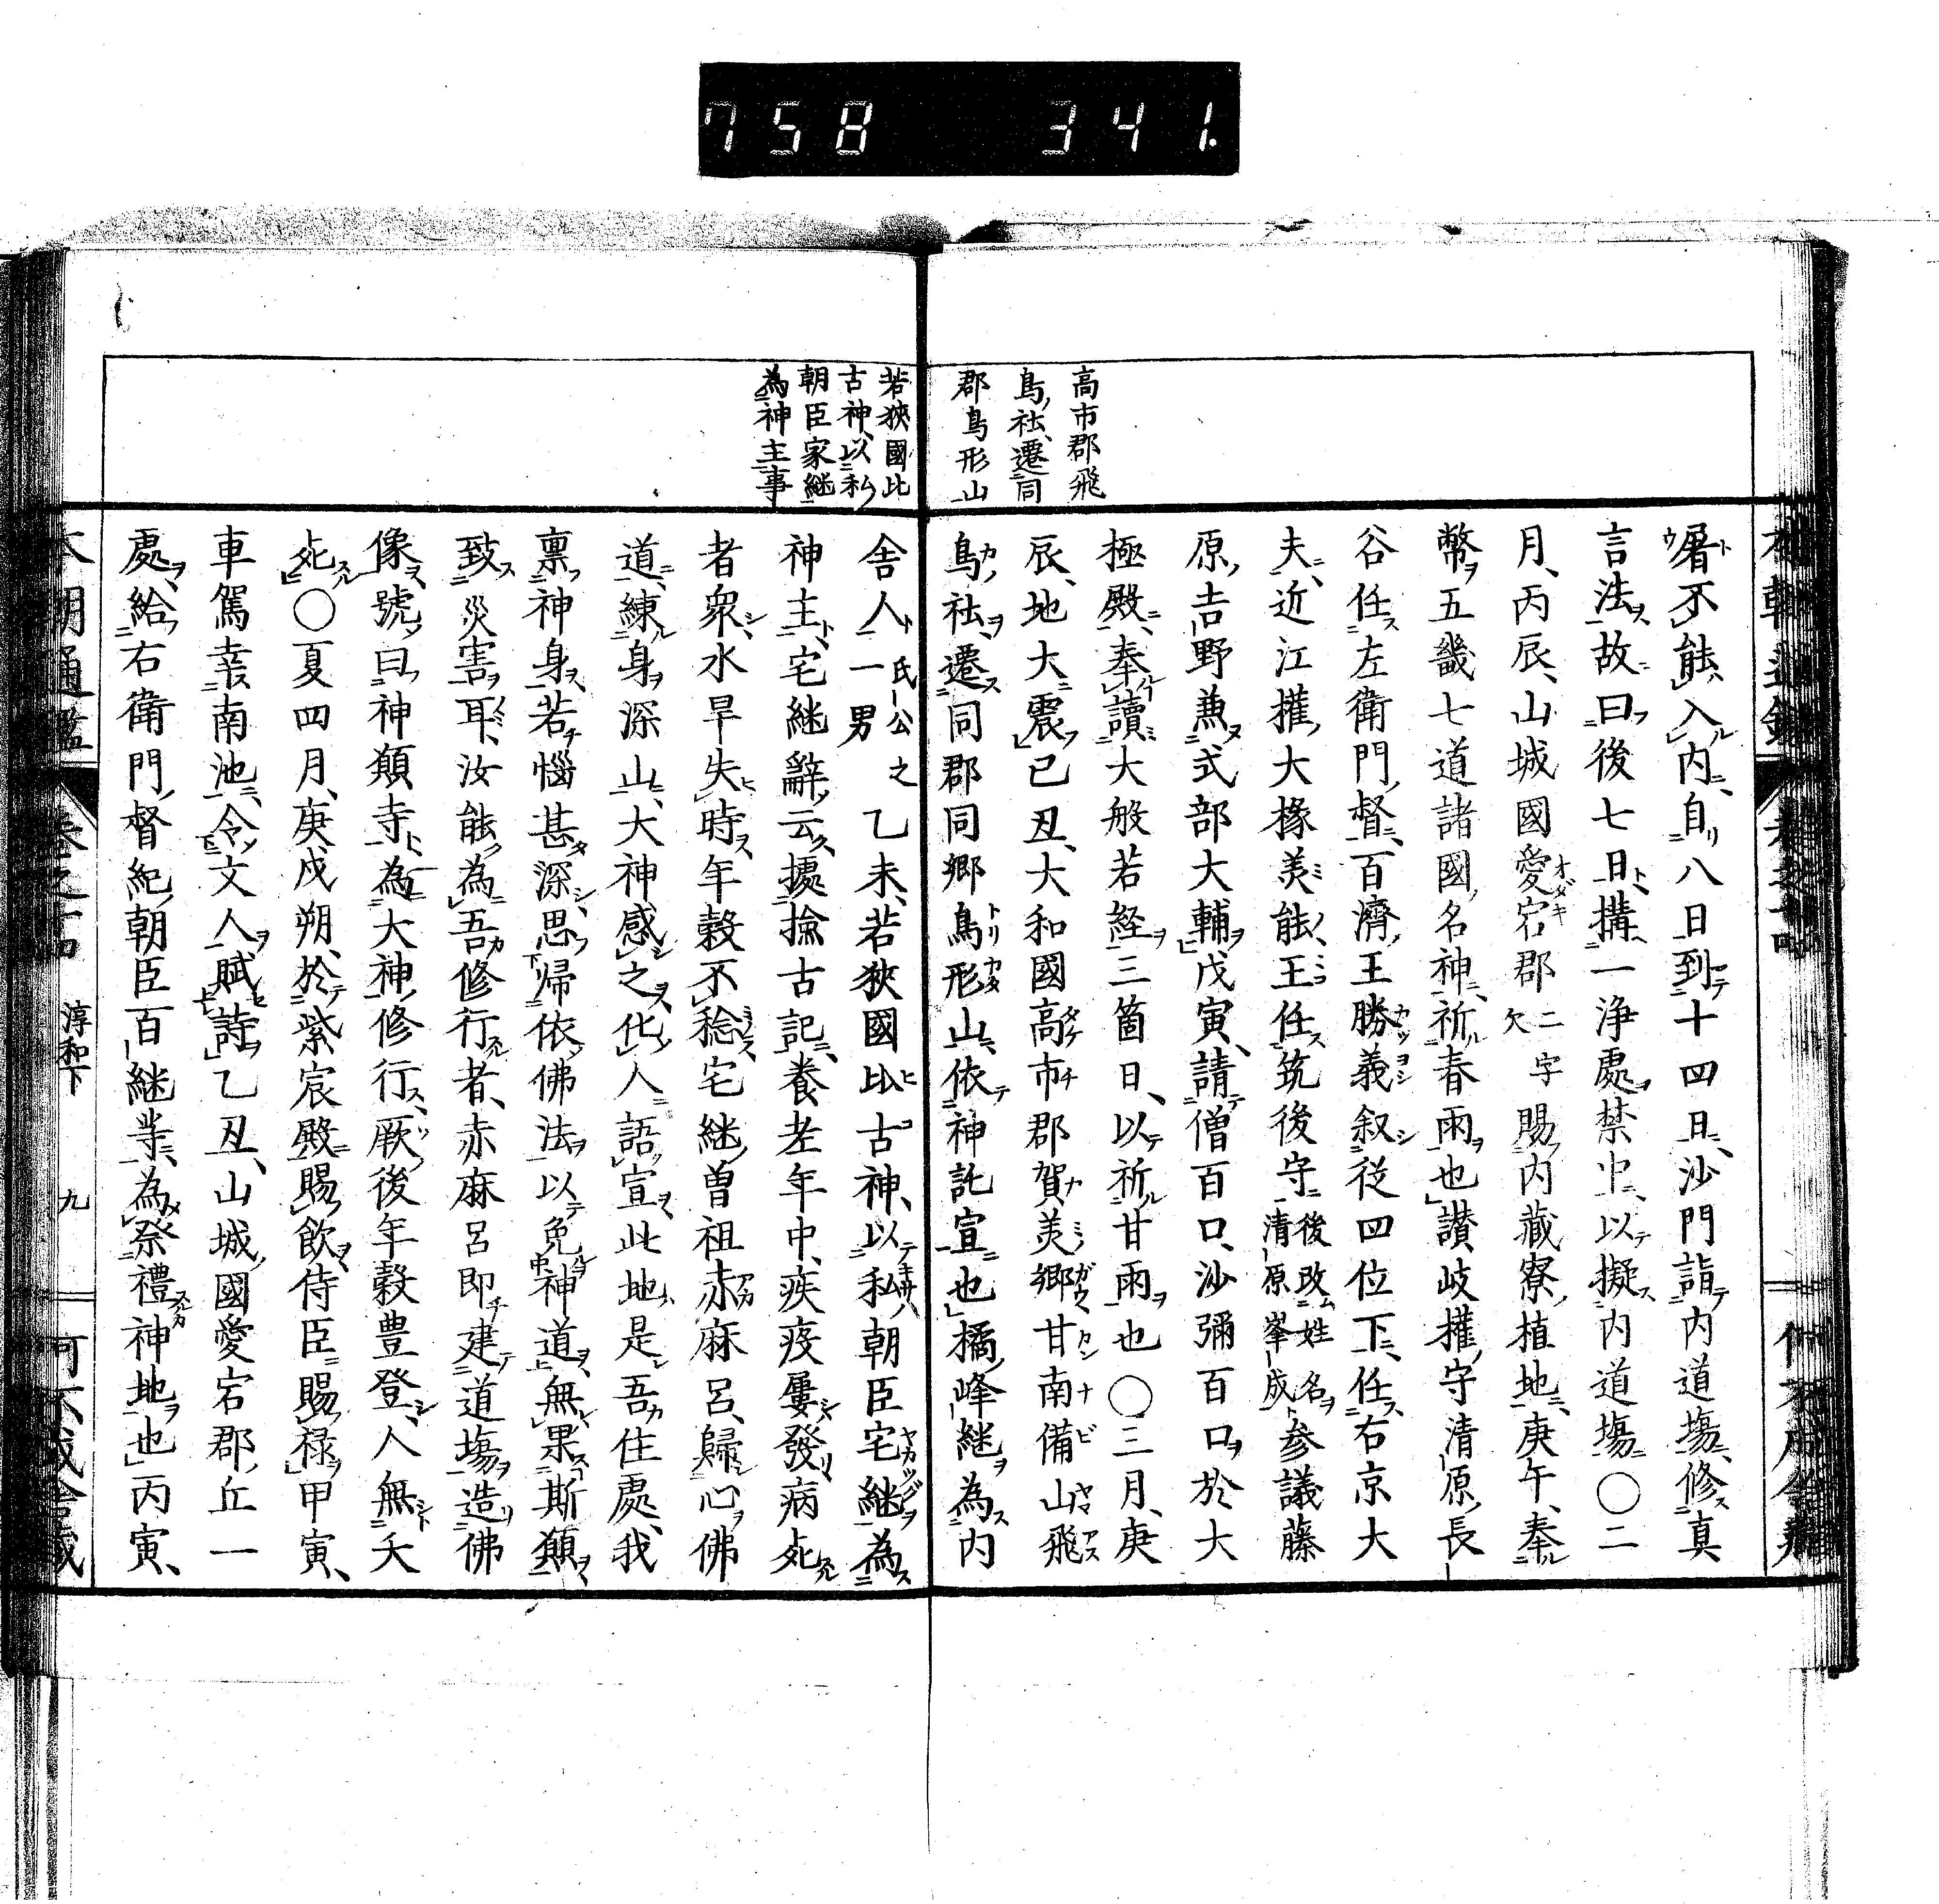 758 341.
高市郡飛
鳥ノ社、遷同
郡鳥形山
屠不能入内、自八日到十四日、沙門詣内道場、修真
言法故曰後七日、搆一浄處禁中、以擬内道場〇二
月、丙辰、山城國愛宕郡二字欠賜内藏寮、植地、庚午、奉
幣五畿七道諸國名神、祈春雨也讃岐權守清原長
谷任左衛門督、百濟王勝義叙從四位下、任右京大
夫、近江權大掾美能王任筑後守後改姓名清原峯成参議藤
原吉野兼式部大輔、戊寅、請僧百口、沙彌百口於大
極殿、奉讀大般若経三箇日、以祈甘雨也〇三月、庚
辰、地大震己丑、大和國高市郡賀美郷甘南備山飛
鳥社、遷同郡同郷鳥形山、依神託宣也橘峰継為内
若狹國比
古神、以私
朝臣家継
為神主事
舎人氏公之一男乙未、若狹國比古神、以私朝臣宅継為
神主、宅継辭云、據撿古記、養老年中、疾疫屢發、病死
者衆、水旱失時、年穀不稔、宅継曽祖赤麻呂、歸心佛
道、練身深山、大神感之、化人語宣、此地是吾住處、我
禀神身、若惱甚深、思歸依佛法、以免神道、無果斯願、
致災害耳、汝能為吾修行者、赤麻呂即建道場、造佛
像、號曰神願寺、為大神修行、厥後年穀豊登、人無夭
死〇夏四月、庚戌朔、於紫宸殿賜飲侍臣賜禄甲寅、
車駕幸南池、令文人賦詩乙丑、山城國愛宕郡丘一
處、給右衛門督紀朝臣百継等、為祭禮神地也丙寅、
本朝通鑑 卷之 淳和下 九